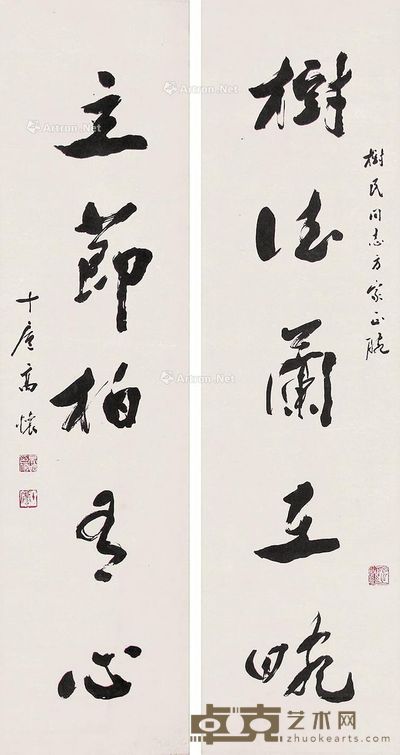 樹德蘭在畹
樹民同志方家正腕
立節柏有心
高懷
Artron.Net
Artron.Net
Artron.Net
Artron.Net
卓克艺术网
zhuokearts.com